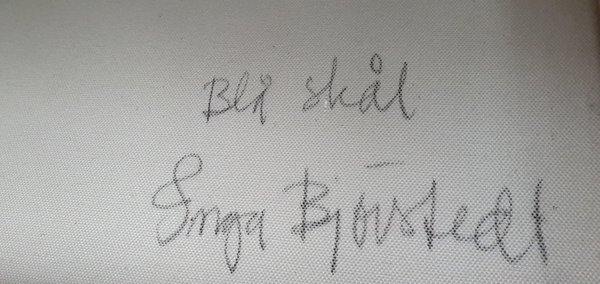 Blå skål
Inga Björstedt